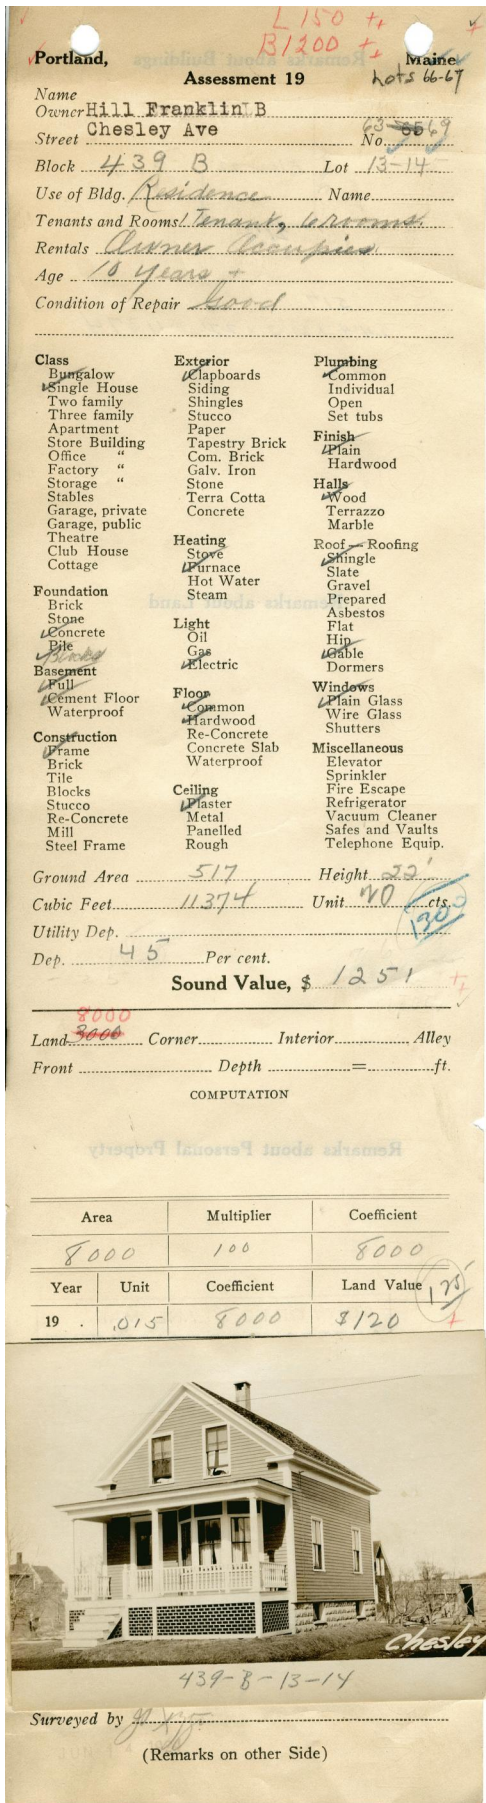 L 150 ++
B1200 ++
Portland, Maine
Assessment 19 Lots 66-67
Name
Owner Hill Franklin B
Street Chesley Ave No. 63-69
Block 439 B Lot 13-14
Use of Bldg. Residence Name
Tenants and Rooms 1 Tenant, 6 rooms.
Rentals Owner Occupies
Age 10 years +
Condition of Repair Good
Class
Bungalow
Single House
Two family
Three family
Apartment
Store Building
Office "
Factory "
Storage "
Stables
Garage, private
Garage, public
Theatre
Club House
Cottage
Foundation
Brick
Stone
Concrete
Pile
Blocks
Basement
Full
Cement Floor
Waterproof
Construction
Frame
Brick
Tile
Blocks
Stucco
Re-Concrete
Mill
Steel Frame
Exterior
Clapboards
Siding
Shingles
Stucco
Paper
Tapestry Brick
Com. Brick
Galv. Iron
Stone
Terra Cotta
Concrete
Heating
Stove
Furnace
Hot Water
Steam
Light
Oil
Gas
Electric
Floor
Common
Hardwood
Re-Concrete
Concrete Slab
Waterproof
Ceiling
Plaster
Metal
Panelled
Rough
Plumbing
Common
Individual
Open
Set tubs
Finish
Plain
Hardwood
Halls
Wood
Terrazzo
Marble
Roof — Roofing
Shingle
Slate
Gravel
Prepared
Asbestos
Flat
Hip
Gable
Dormers
Windows
Plain Glass
Wire Glass
Shutters
Miscellaneous
Elevator
Sprinkler
Fire Escape
Refrigerator
Vacuum Cleaner
Safes and Vaults
Telephone Equip.
Ground Area 517 Height 22'
Cubic Feet 11374 Unit 20 cts.
1300
Utility Dep.
Dep. 45 Per cent.
Sound Value, $ 1251
8000
Land 3000 Corner Interior Alley
Front Depth = ft.
COMPUTATION
Area Multiplier Coefficient
8000 100 8000
Year Unit Coefficient Land Value 125
19 . .015 8000 $120
Chesley
439-B-13-14
Surveyed by
(Remarks on other Side)